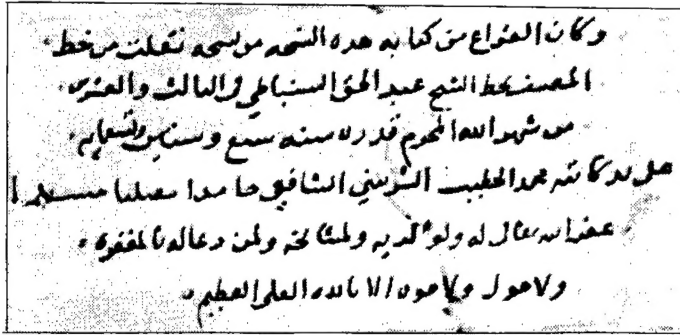 وكان الفراغ من كتابة هذه النسخه من نسخه نقلت من خط
المصنف بخط الشيخ عبد الحق السنباطي في الثالث والعشرين
من شهر الله المحرم قدره سنه سبع وستين وتسعمايه
على يد كاتبه محمد الخطيب الشربيني الشافعي حامدا مصليا مسلما
غفر الله تعالى له ولوالديه ولمشايخه ولمن دعا له بالمغفرة
ولا حول ولا قوة الا بالله العلى العظيم